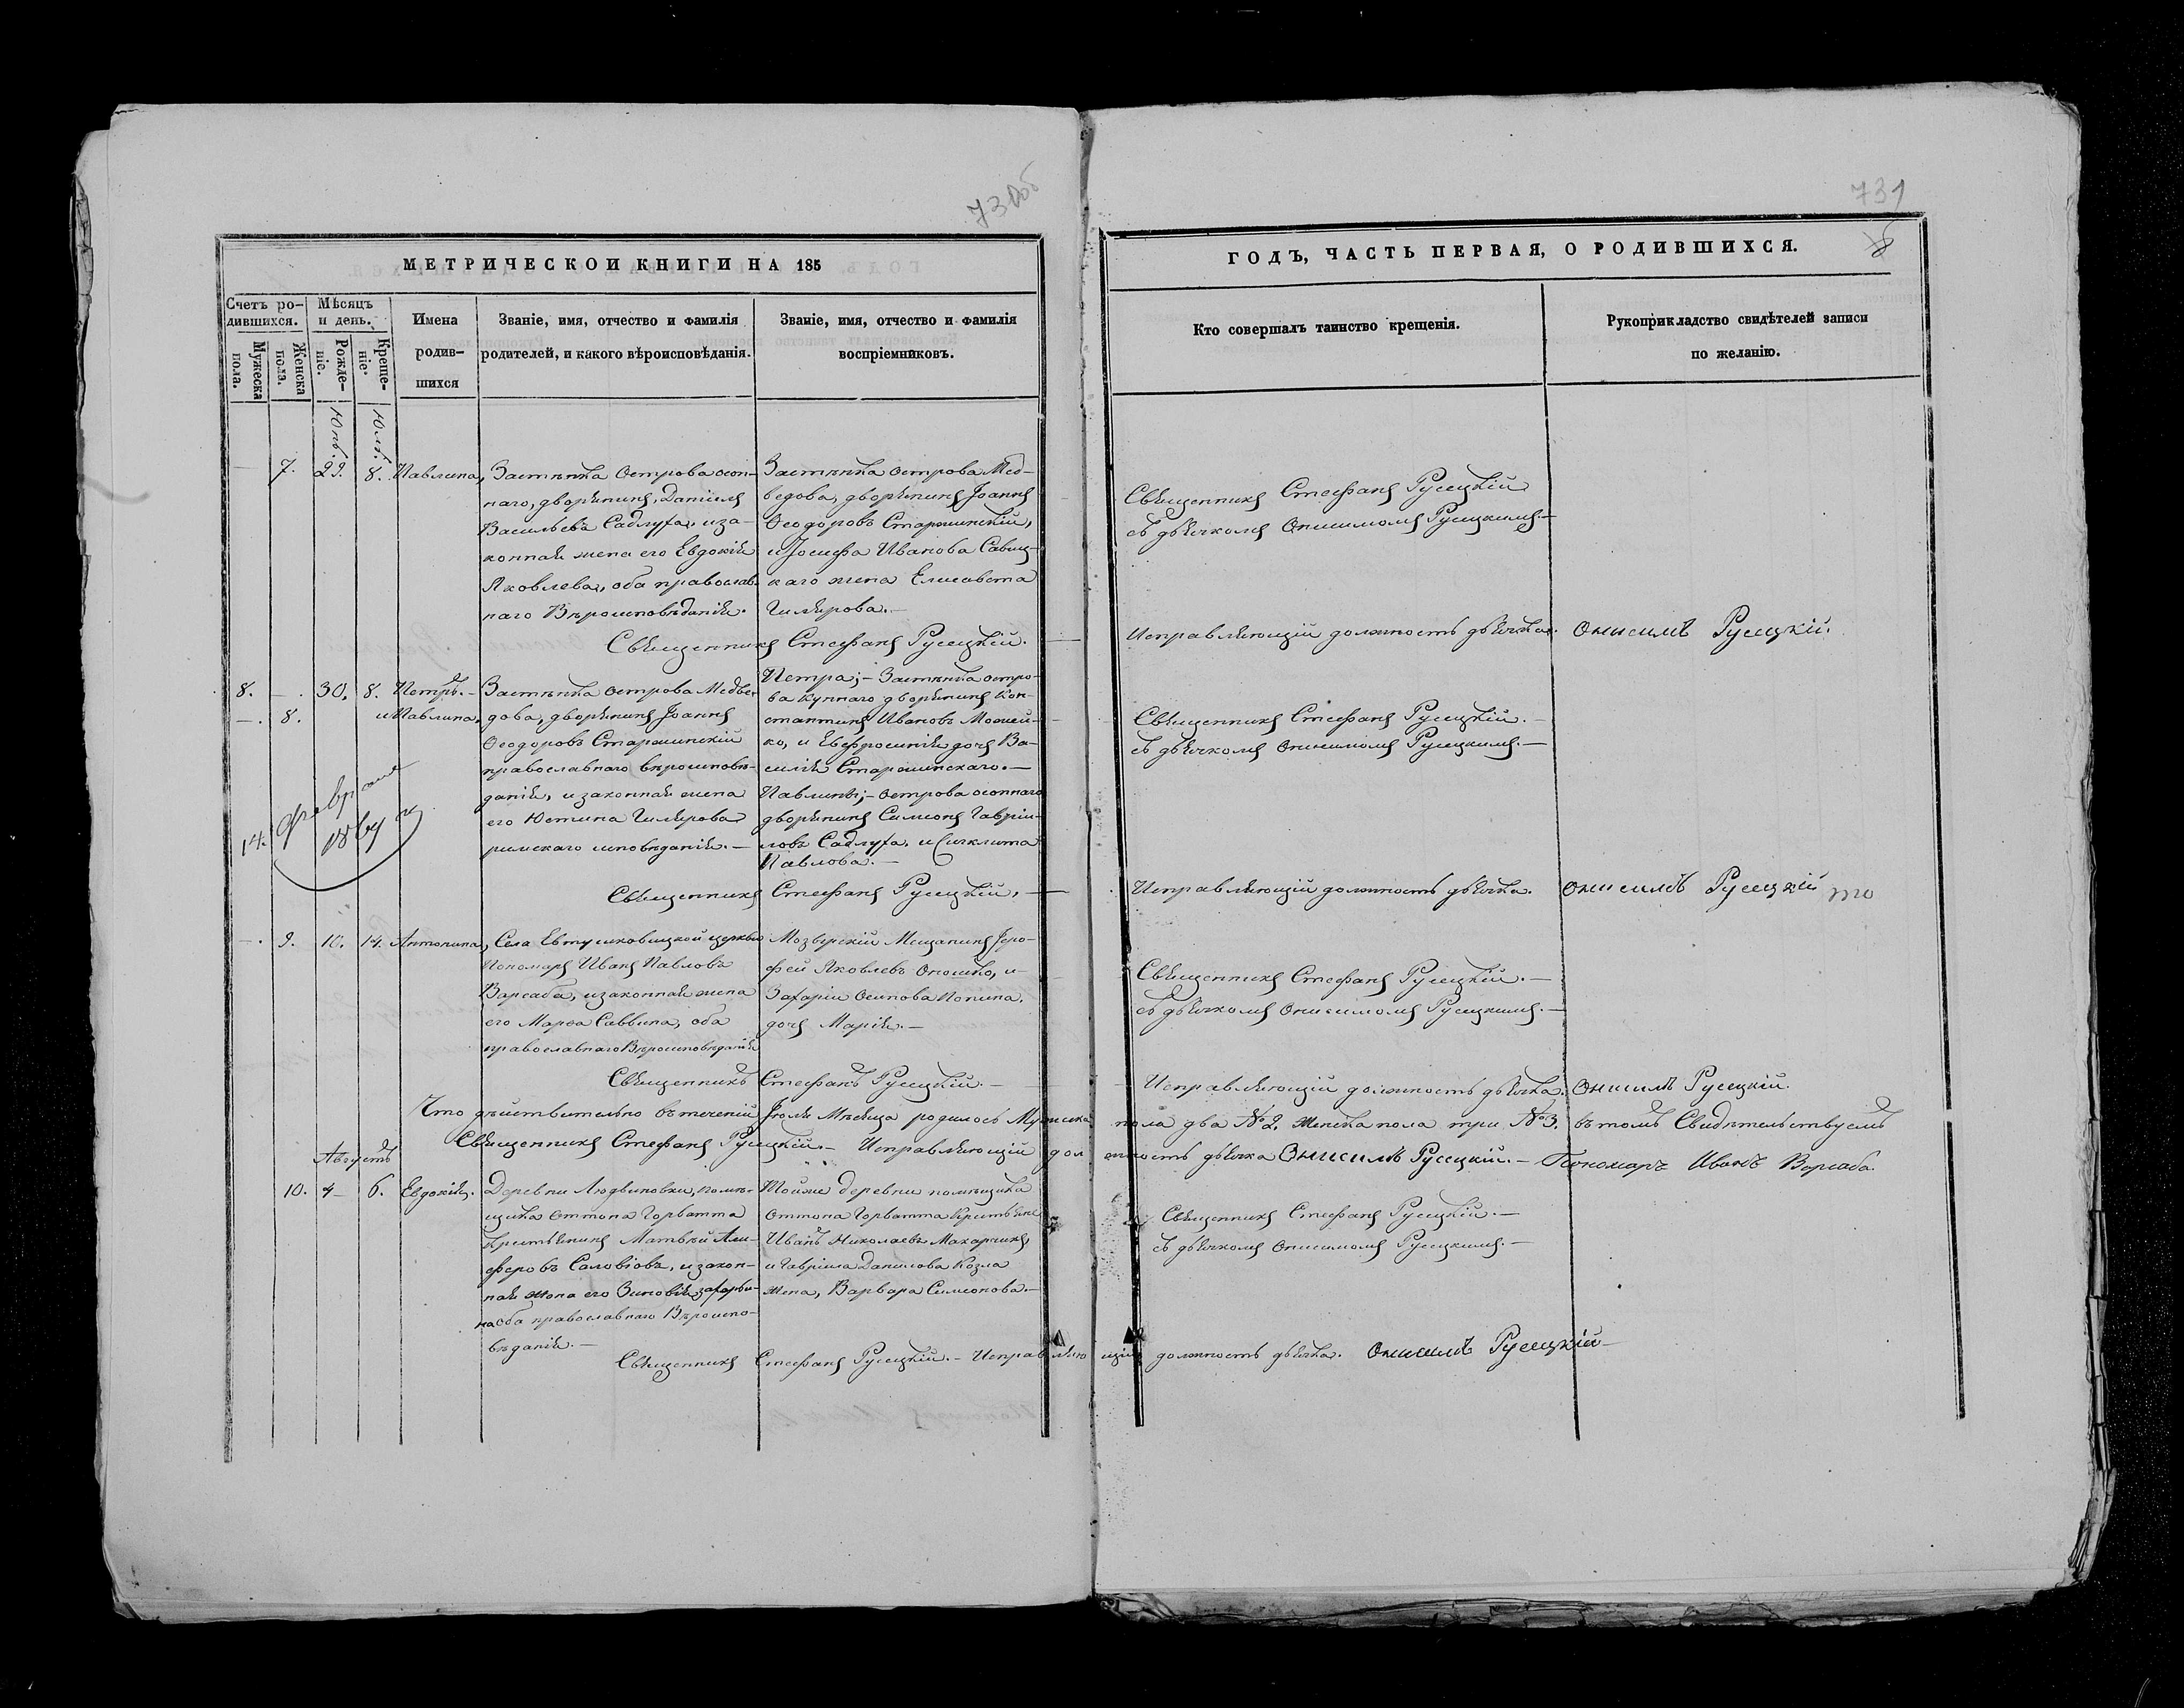 730об
МЕТРИЧЕСКОЙ КНИГИ НА 185
Счетъ ро-
дившихся.
Мѣсяцъ
и день.
Имена
родив-
шихся
Званіе, имя, отчество и фамилія
родителей, и какого вѣроисповѣданія.
Званіе, имя, отчество и фамилія
воспріемниковъ.
Мужеска
пола.
Женска
пола.
Рожде-
ніе.
Креще-
ніе.
Юнь.
Юль.
7. 29. 8. Павлина,
Застѣнка Острова осоп-
наго, дворянинъ, Даніилъ
Васильевъ Садлуха, и за-
конная жена его Евдокія
Яковлева, оба православ-
наго Вѣроисповѣданія.
Застѣнка острова Мед-
ведова, дворянинъ Іоаннъ
Ѳеодоровъ Старжинскій,
и Іосифа Иванова Савиц-
каго жена Елисавета
Священникъ Стефанъ Русецкій.
8. — 30. 8. Петръ. —
— 8. и Павлина,
Застѣнка острова Медве-
дова, дворянинъ Іоаннъ
Ѳеодоровъ Старжинскій
православнаго вѣроисповѣ-
данія, и законная жена
его Юстина
римскаго исповѣданія. —
Петра; — Застѣнка остро-
ва Купнаго дворянинъ Кон-
стантинъ Ивановъ Можей-
ко, и Евфросинія дочь Ва-
силія Старжинскаго. —
Павлины; — острова осопнаго
дворянинъ Симеонъ Гаврiи-
ловъ Садлуха, и
Павлова. —
14. февраля
Священникъ Стефанъ Русецкій. —
— 9. 10. 14. Антонина,
Села Евтушковицкой церкви
Пономарь Иванъ Павловъ
Варсаба, и законная жена
его Марѳа Саввина, оба
православнаго Вѣроисповѣданія
Мозырскій Мещанинъ Іеро-
фей Яковлевъ Опошко, и
Захаріи Осипова Попина,
дочь Марія. —
Священникъ Стефанъ Русецкій. —
Что дѣйствительно въ теченіи Іюля Мѣсяца родилось Мужеска пола два № 2. Женска пола три № 3. въ томъ Свидѣтельствуемъ
Священникъ Стефанъ Русецкій. — Исправляющій должность дьячка Онисимъ Русецкій. — Пономарь Иванъ Варсаба.
Августъ
10. 4 6. Евдокія.
Деревни Людвиновки, помѣ-
щика Оттона Горватта
Крестьянинъ Матвѣй Али-
феровъ Саловіовъ, и закон-
ная жена его Зиновія Захарьи-
на оба православнаго Вѣроиспо-
вѣданія. —
Тойже деревни помѣщика
Оттона Горватта Крестьяне
Иванъ Николаевъ Макарчикъ
и Гавріила Данилова Козла
жена, Варвара Симеонова. —
Священникъ Стефанъ Русецкій. — Исправляющій должность дьячка. Онисимъ Русецкій
731
ГОДЪ, ЧАСТЬ ПЕРВАЯ, О РОДИВШИХСЯ.
Кто совершалъ таинство крещенія.
Рукоприкладство свидѣтелей записи
по желанію.
Священникъ Стефанъ Русецкій
съ дьячкомъ Онисимомъ Русецкимъ. —
Исправляющій должность дьячка. Онисимъ Русецкій.
Священникъ Стефанъ Русецкій. —
съ дьячкомъ Онисимомъ Русецкимъ. —
Исправляющій должность дьячка. Онисимъ Русецкій
Священникъ Стефанъ Русецкій. —
съ дьячкомъ Онисимомъ Русецкимъ. —
Исправляющій должность дьячка. Онисимъ Русецкій.
Священникъ Стефанъ Русецкій. —
съ дьячкомъ Онисимомъ Русецкимъ. —